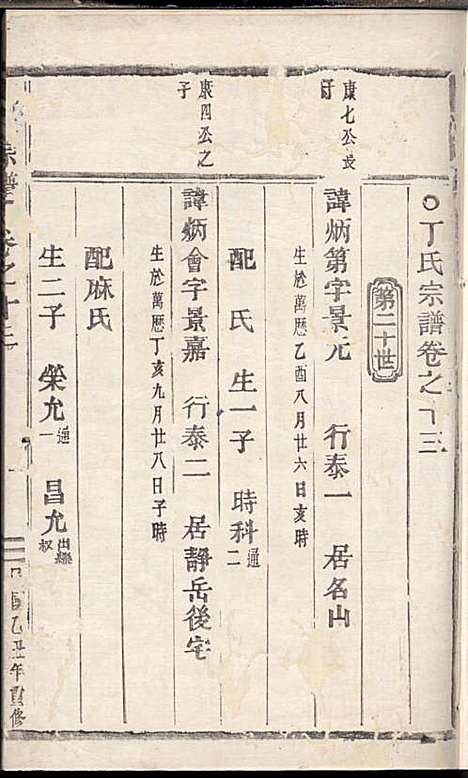 ○丁氏宗譜卷之十三
第二十世
康七公長
子
諱炳第字景元 行泰一 居名山
生於萬曆乙酉八月廿六日亥時
配 氏 生一子 時科通二
康四公之
子
諱炳會字景嘉 行泰二 居靜岳後宅
生於萬歷丁亥九月廿八日子時
配麻氏
生二子 榮允通一 昌允出繼叔
宗譜 卷之十三
乙丑年重修